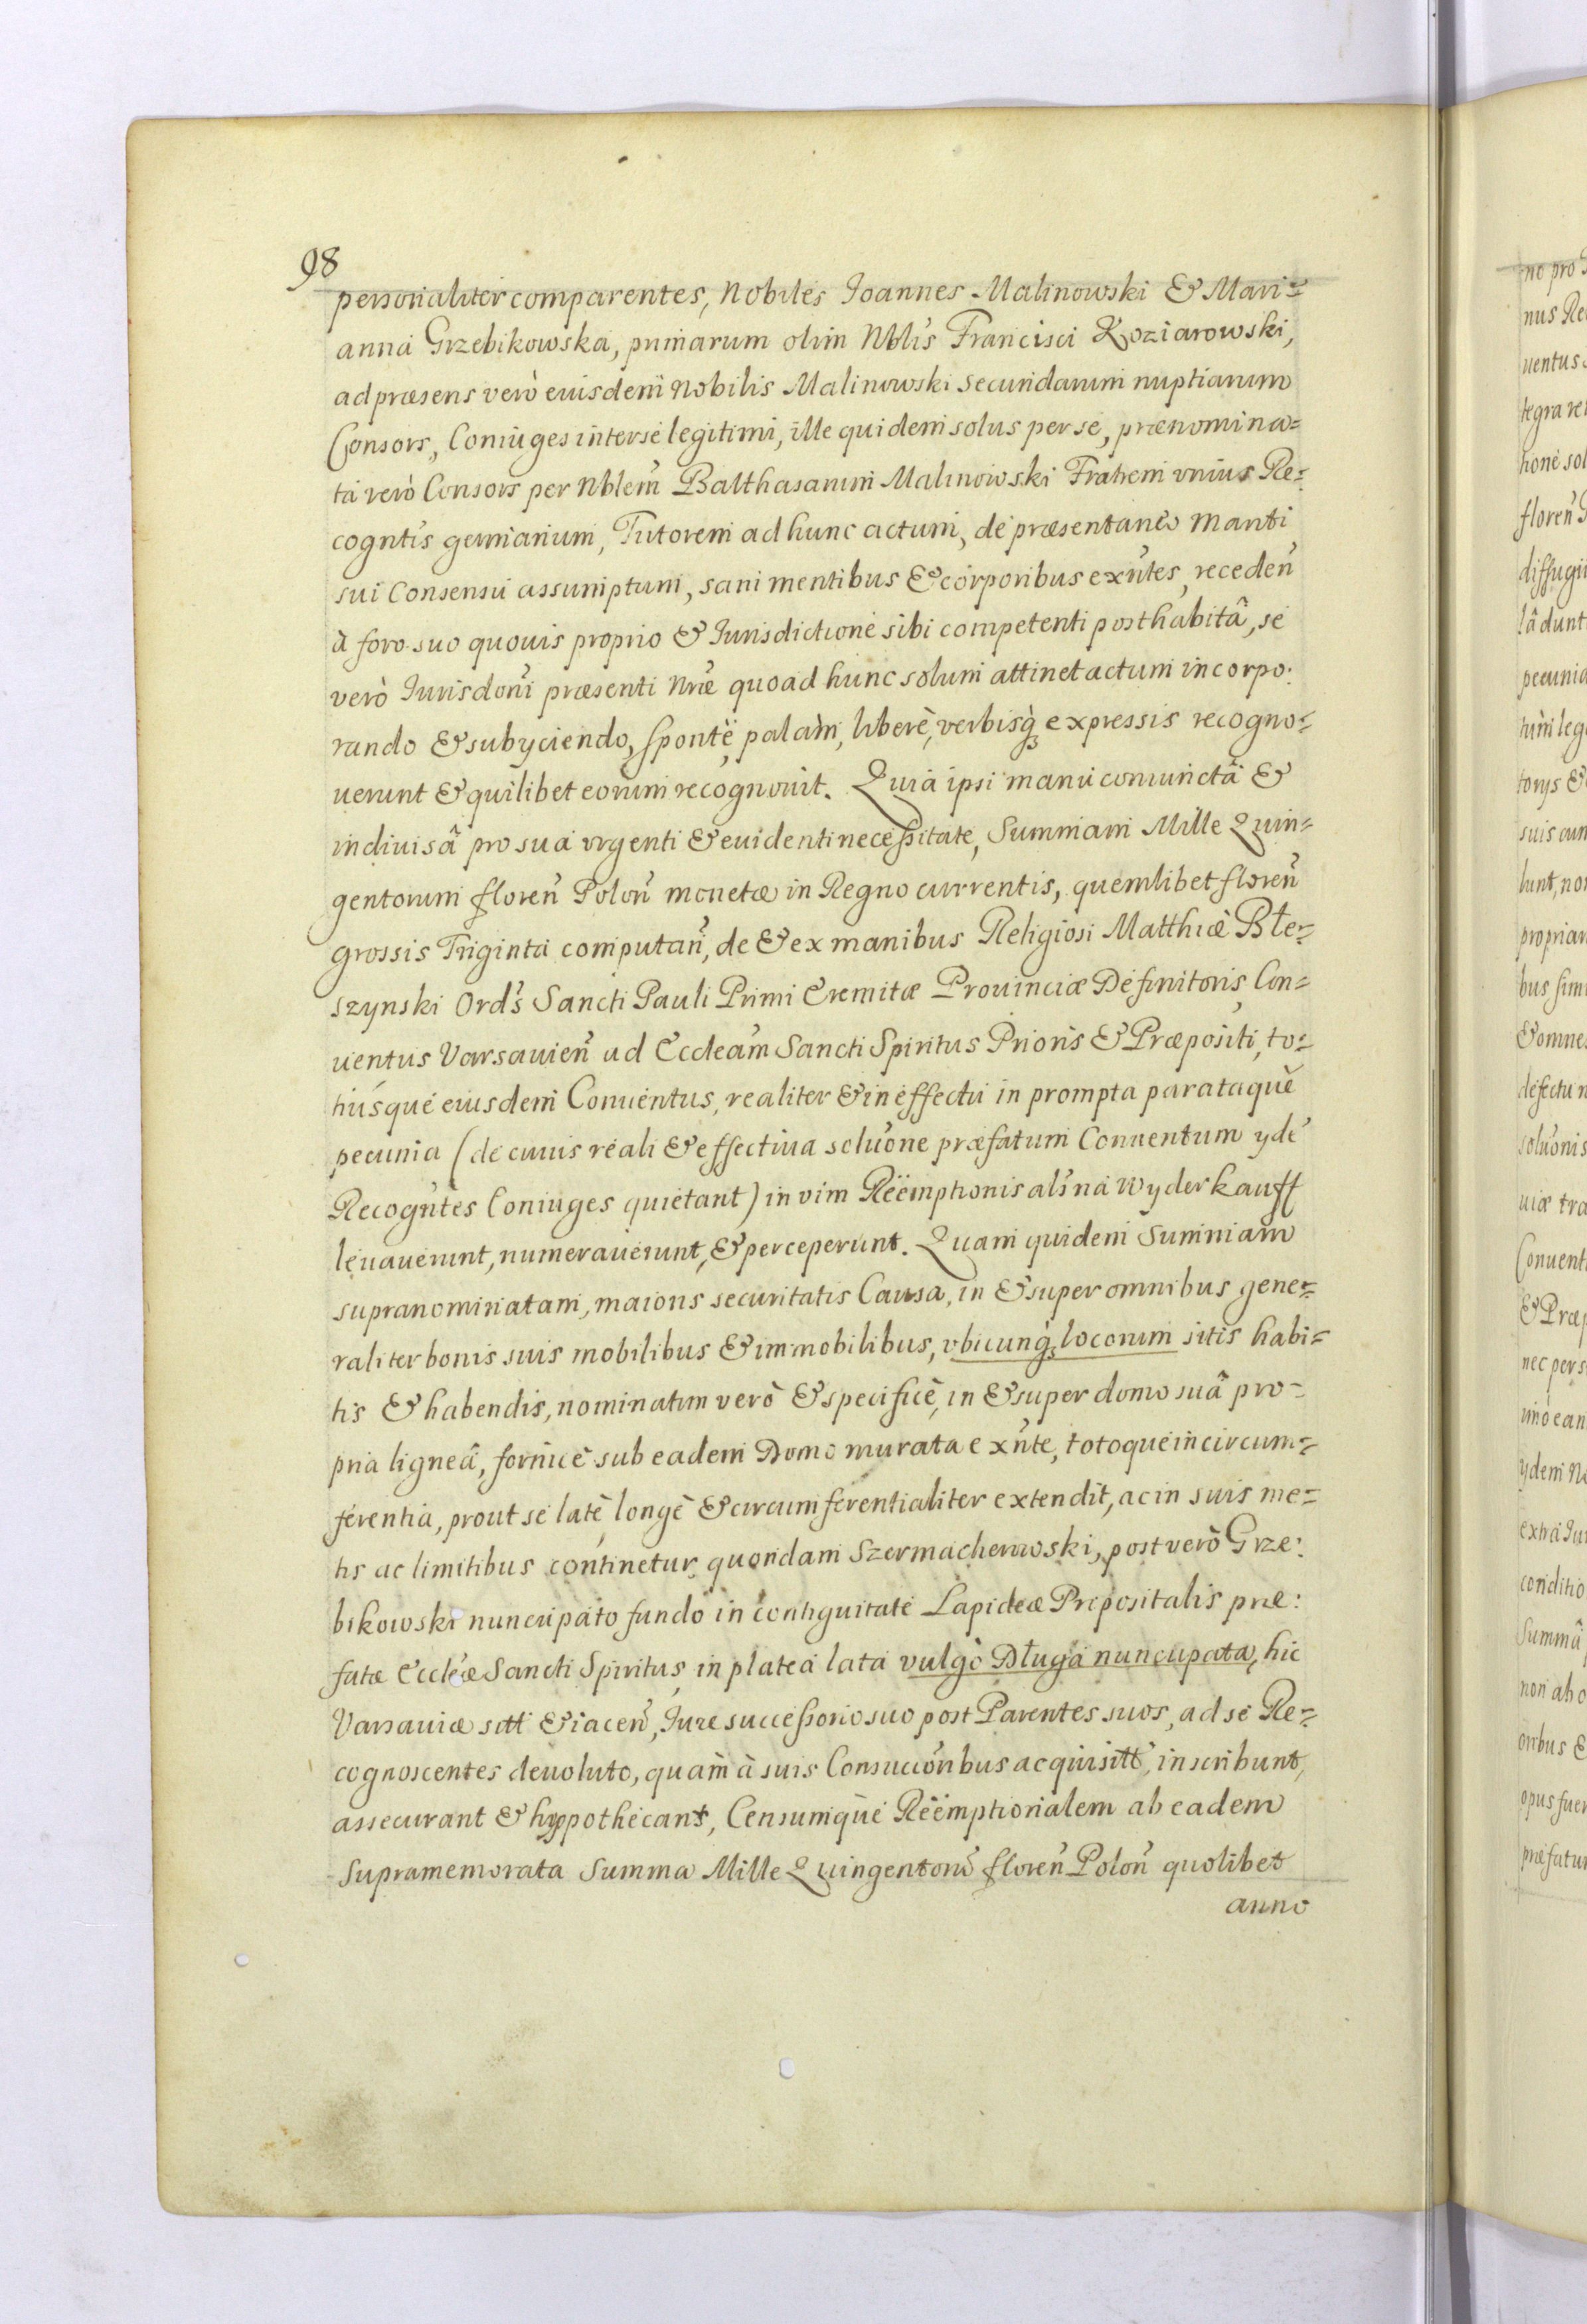 98
personaliter comparentes, Nobiles Joannes Malinowski & Mari=
anna Grzebikowska, primarum olim Nblis Francisci Koziarowski,
ad præsens verò eiusdem Nobilis Malinowski secundarum nuptiarum
Consors, Coniuges inter se legitimi, ille quidem solus per se, prænomina=
ta verò Consors per Nblem Balthasarum Malinowski Fratrem vnius Re=
cogntis germanum, Tutorem ad hunc actum, de præsentaneo Mariti
sui Consensu assumptum, sani mentibus & corporibus exn̄tes, receden̄
à foro suo quouis proprio & Jurisdictione sibi competenti posthabitâ, se
verò Jurisdoni præsenti Nræ quoad hunc solum attinet actum incorpo:
rando & subyciendo, sponte, palàm, liberè, verbisq; expressis recogno=
uerunt & quilibet eorum recognouit. Quia ipsi manu coniunctâ &
indiuisâ pro sua vrgenti & euidenti necessitate, Summam Mille Quin=
gentorum floren̄ Polon̄ monetæ in Regno currentis, quemlibet floren̄
grossis Triginta computan̄, de & ex manibus Religiosi Matthiæ Błe=
szynski Ord̄s Sancti Pauli Primi Eremitæ Prouinciæ Definitoris, Con=
uentus Varsauien̄ ad Eccleam̄ Sancti Spiritus Prioris & Præpositi, to=
tiusque eiusdem Conuentus, realiter & in effectu in prompta parataque
pecunia (de cuius reali & effectiua soluōne præfatum Conuentum yde
Recogn̄tes Coniuges quietant) in vim Rëemptionis als na Wyderkauff
leuauerunt, numerauerunt, & perceperunt. Quam quidem Summam
supranominatam, maioris securitatis Causa, in & super omnibus gene=
raliter bonis suis mobilibus & immobilibus, vbicunq; locorum sitis habi=
tis & habendis, nominatim verò & specificè, in & super domo suâ pro=
pria ligneâ, fornice sub eadem Domo murata exn̄te, totoque in circum=
ferentia, prout se latè longè & circumferentialiter extendit, ac in suis me=
tis ac limitibus continetur quondam Szermacherowski, post verò Grze:
bikowski nuncupato fundo in contiguitate Lapideæ Præpositalis præ:
fatæ Eccleæ Sancti Spiritus, in platea lata vulgò Długa nuncupata, hic
Varsauiæ sitt & iacen̄, Jure successorio suo post Parentes suos, ad se Re=
cognoscentes deuoluto, quam à suis Consuccōribus acquisitt, inscribunt,
assecurant & hyppothecant, Censumque Rëemptionalem ab eadem
supramemorata Summa Mille Quingentorū floren̄ Polon̄ quolibet
anno